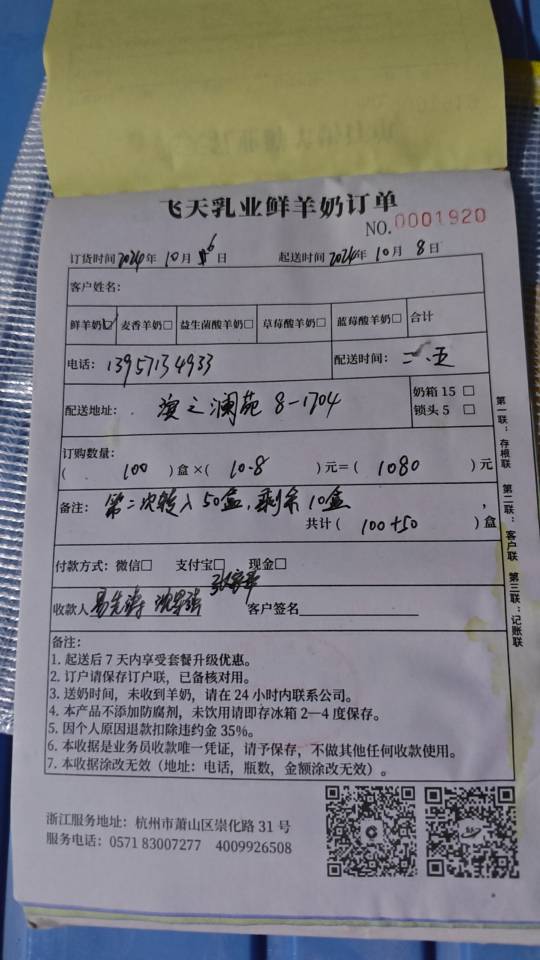 飞天乳业鲜羊奶订单
NO.0001920
订货时间2024年10月6日 起送时间2024年10月8日
客户姓名:
鲜羊奶☑ 麦香羊奶□ 益生菌酸羊奶□ 草莓酸羊奶□ 蓝莓酸羊奶□ 合计
电话: 13957134933 配送时间: 二.五
配送地址: 澜苑 8-1704 奶箱 15 □
锁头 5 □
订购数量:
( 100 )盒×( 10.8 )元=( 1080 )元
备注: 第二次转入50盒,剩余10盒,
共计( 100+50 )盒
付款方式: 微信□ 支付宝□ 现金□
收款人 客户签名
备注:
1. 起送后 7 天内享受套餐升级优惠。
2. 订户请保存订户联,已备核对用。
3. 送奶时间,未收到羊奶,请在 24 小时内联系公司。
4. 本产品不添加防腐剂,未饮用请即存冰箱 2—4 度保存。
5. 因个人原因退款扣除违约金 35%。
6. 本收据是业务员收款唯一凭证,请予保存,不做其他任何收款使用。
7. 本收据涂改无效(地址:电话,瓶数,金额涂改无效)。
第一联:存根联 第二联:客户联 第三联:记账联
浙江服务地址:杭州市萧山区崇化路 31 号
服务电话:0571 83007277 4009926508